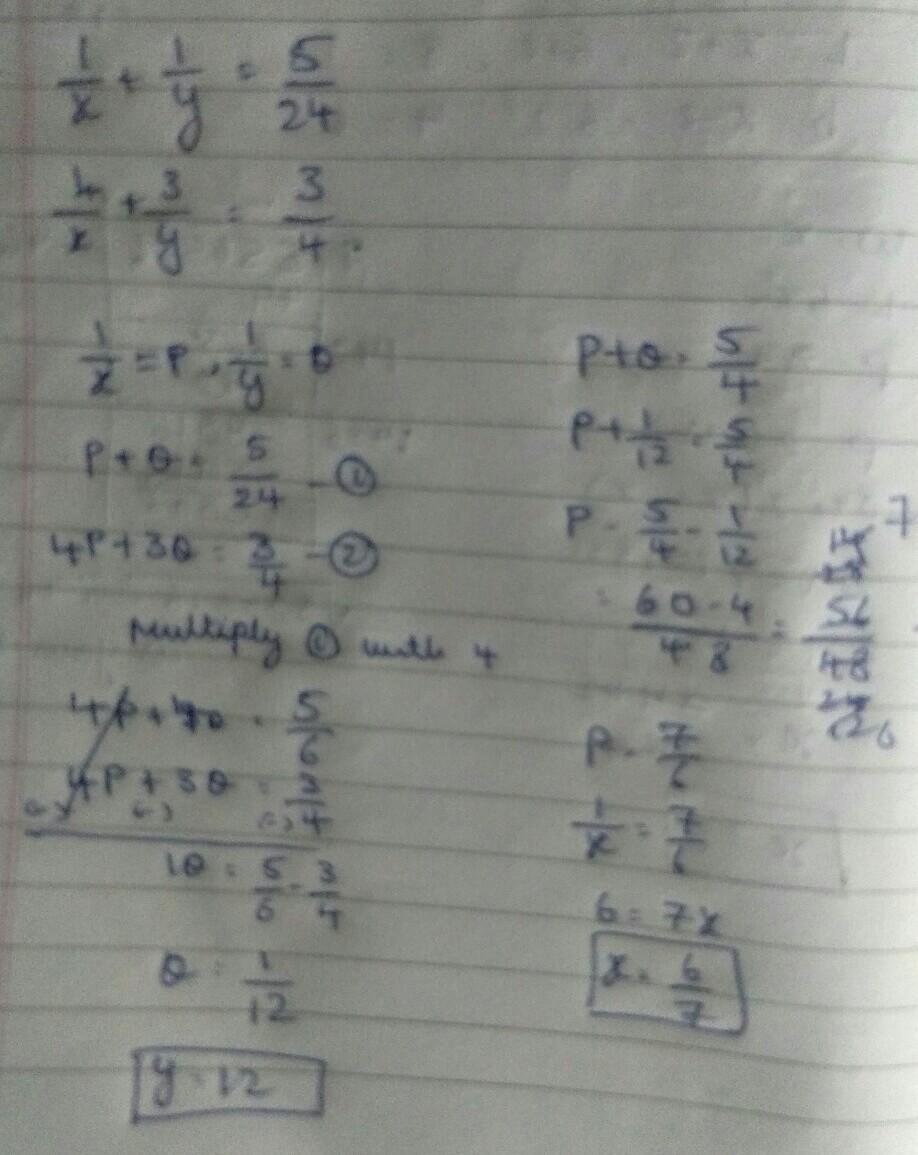 1/x + 1/y = 5/24
4/x + 3/y = 3/4.
1/x = P, 1/y = θ
P + θ = 5/24 - ①
4P + 3θ = 3/4 - ②
Multiply ① with 4
4P + 4θ = 5/6
4P + 3θ = 3/4
(-) (-) (-)
1θ = 5/6 - 3/4
θ = 1/12
y = 12
P + θ = 5/4
P + 1/12 = 5/4
P = 5/4 - 1/12
= 60 - 4/48 = 56/48
7
P = 7/6
1/x = 7/6
6 = 7x
x = 6/7